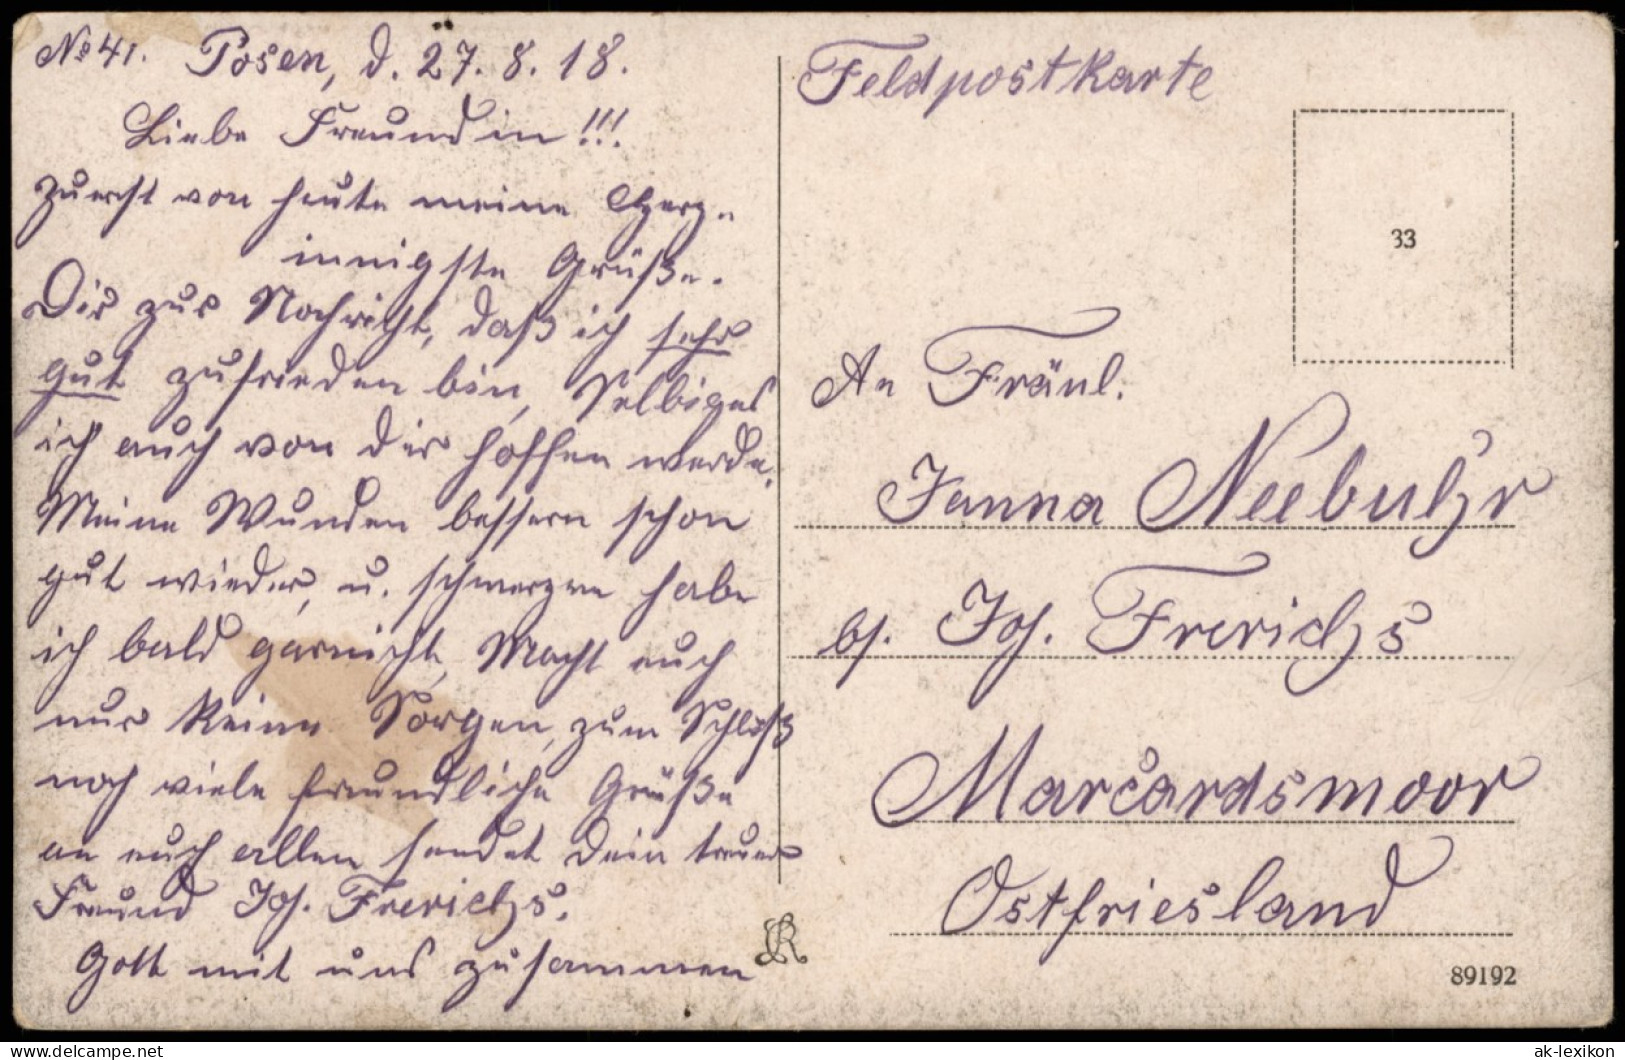 No 41. Posen, d. 27. 8. 18.
Liebe Freundin!!!
Zuerst von heute meine Herz-
innigste Grüße.
Dir zur Nachricht, daß ich sehr
gut zufrieden bin, Selbiges
ich auch von dir hoffen werde.
Meine Wunden bessern schon
gut wieder, u. schmerzen habe
ich bald garnicht, Macht euch
nur keine Sorgen, zum Schluß
noch viele freundliche Grüße
an euch allen sendet dein treuer
Freund Joh. Frerichs.
Gott mit uns zusammen
Feldpostkarte
33
An Fräul.
Janna Neebuhr
bs. Joh. Frerichs
Marcardsmoor
Ostfriesland
89192
www.delcampe.net
ak-lexikon